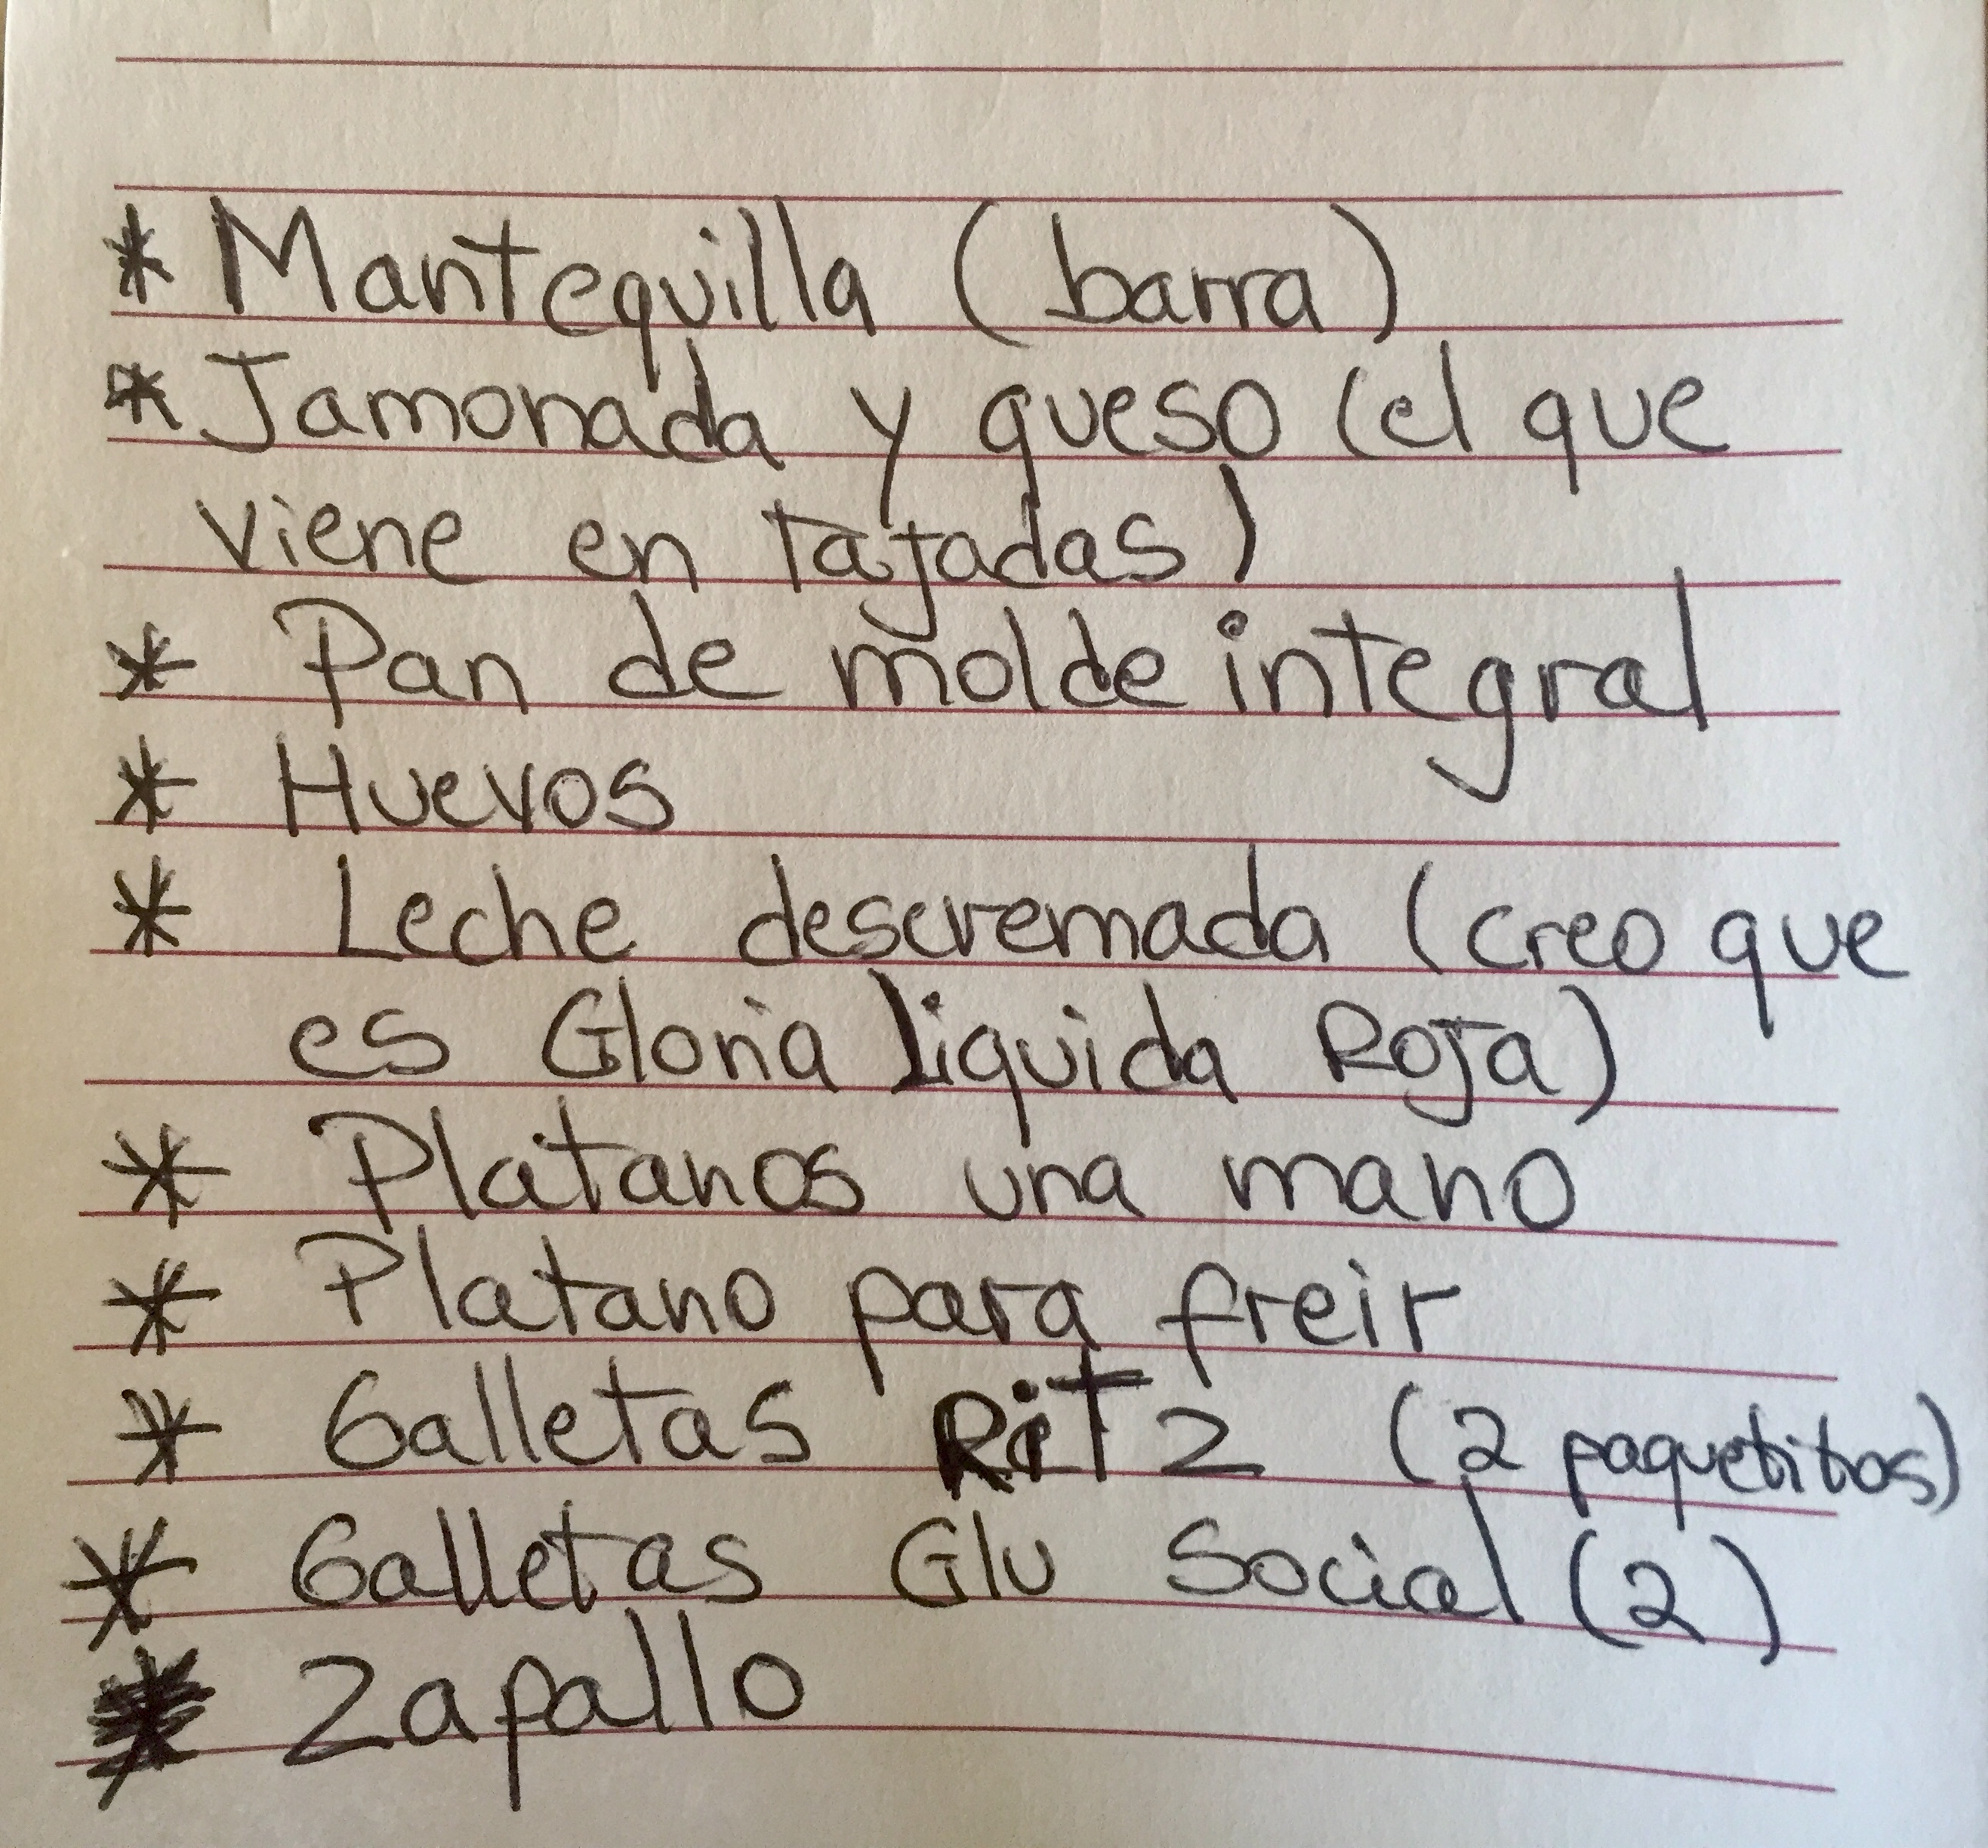 * Mantequilla (barra)
* Jamonada y queso (el que
viene en tajadas)
* Pan de molde integral
* Huevos
* Leche descremada (creo que
es Gloria liquida Roja)
* Platanos una mano
* Platano para freir
* Galletas Ritz (2 paquetitos)
* Galletas Glu Social (2)
* Zapallo